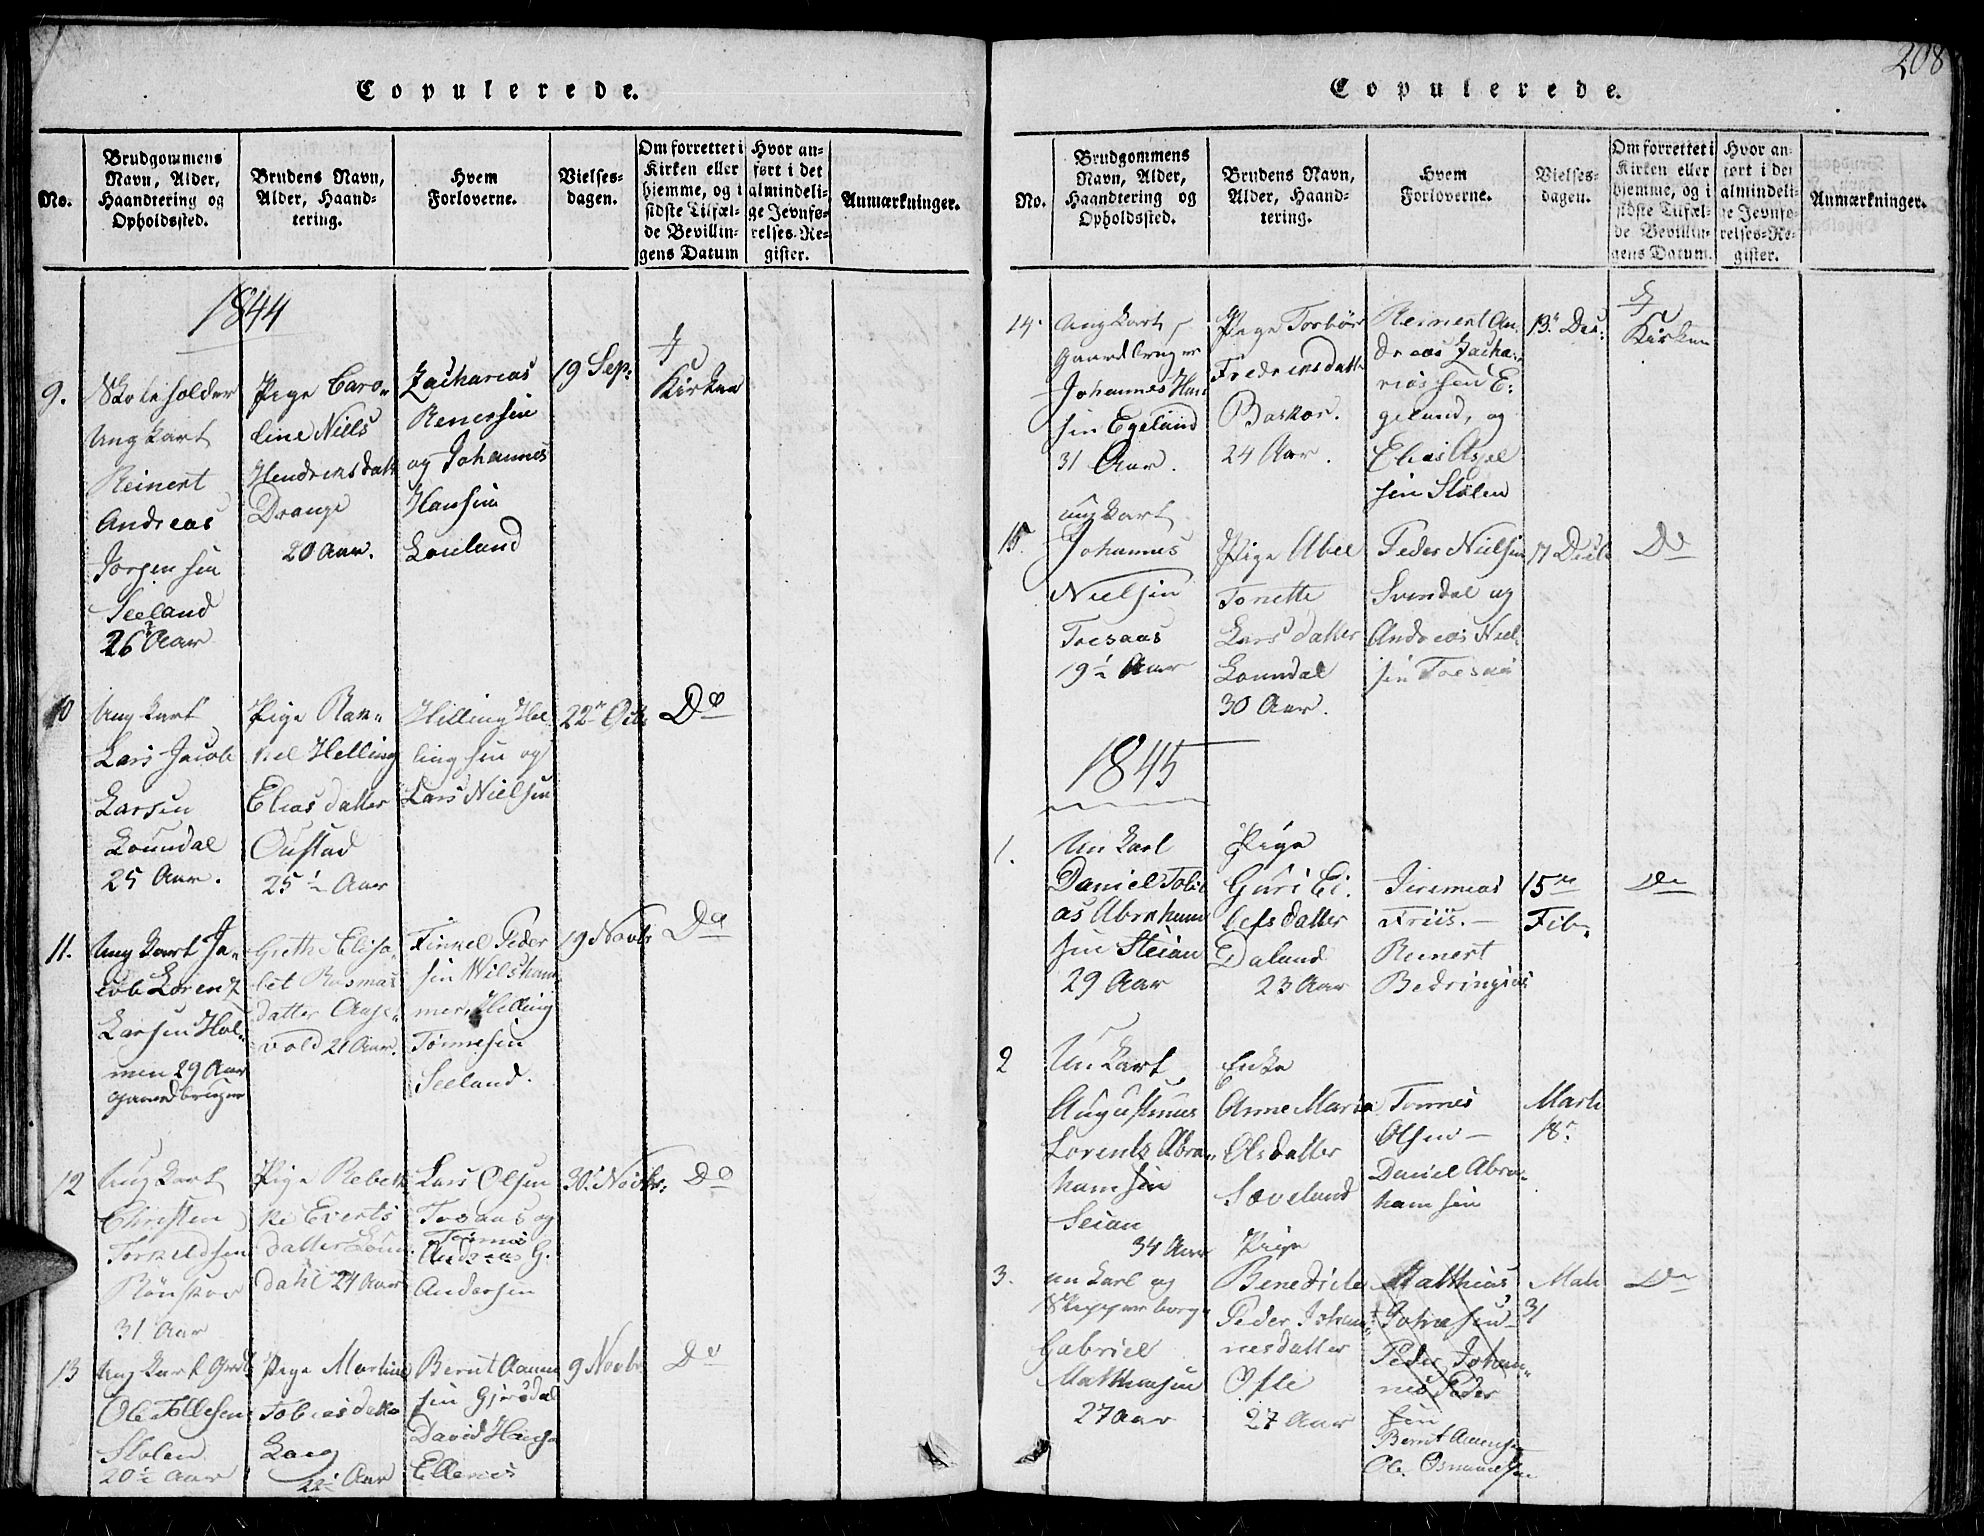 Copulerede.
No.
Brudgommens
Navn, Alder,
Haandtering og
Opholdssted.
Brudens Navn,
Alder, Haand-
tering.
Hvem
Forloverne.
Vielses-
dagen.
Om forrettet i
Kirken eller
hjemme, og i
sidste Tilfæl-
de Bevillin-
gens Datum
Hvor an-
ført i det
almindeli-
ge Jevnfø-
relses-Re-
gister.
Anmærkninger.
1844
9.
Ungkarl
Reinert
Andreas
Jørgensen
Seeland
26 Aar
Pige Caro-
line Niels
Hendriksdatt
Drange
20 Aar.
Zacharias
Reinersen
og Johannes
Hansen
Loeland
19 Sep:
I
Kirken
10
Ungkarl
Lars Jacob
Larsen
Loundal
25 Aar.
Pige Ra-
kel Helling
Elias datter
Oustad
25 ½ Aar
Helling Hel
lingsen og
Lars Nielsen
22de Octr
Do
11.
Ungkarl Ja-
cob Lorenz
Larsen Hol-
men 29 Aar
gaardbruger
Grethe Elisa-
bet Rasmus
datter
vold 21 Aar.
Finkel Peder
sen Wilsham
mer, Helling
Tønnesen
Seeland.
19 Novbr
Do
12
Ungkarl
Christen
Torkeldsen
Rønskor
31 Aar
Pige Rebek
ke Everts
datter Loun
dahl 24 Aar
Lars Olsen
Tosaas og
Tønnes
Andreas G.
Andersen
30. Novbr:
Do
13
Ungkarl
Ole Tollesen
Stølen
20½ Aar
Pige Martine
Tobias datter
22 Aar
Bernt Aamun
sen Gjersdal
David Hans
Ellenes
9 Novbr
Do
Copulerede.
208
No.
Brudgommens
Navn, Alder,
Haandtering og
Opholdssted.
Brudens Navn,
Alder, Haand-
tering.
Hvem
Forloverne.
Vielses-
dagen.
Om forrettet i
Kirken eller
hjemme, og i
sidste Tilfæl-
de Bevillin-
gens Datum.
Hvor an-
ført i det
almindeli-
ge Jevnfø-
relses-Re-
gister.
Anmærkninger.
14.
Ungkarl
Gaardbruger
Johannes Han
sen Egeland
31 Aar.
Pige Torbør
Fredriksdatt
Baskor.
24 Aar.
Reinert An
dreas Zacha-
riassen E-
geland, og
Elias Axel
sen Stølen
13. Dec:
I
Kirken
15.
ungkarl
Johannes
Nielsen
Tosaas
19 ½ Aar
Pige Abel
Tonette
Lars datter
Loundal
30 Aar.
Peder Nielsen
Svendal og
Andreas Niel
sen Tosaas
17 Decb
Do
1845
1.
Un Karl
Daniel Tobi
as Abraham
sen Steian
29 Aar
Pige
Guri Ei-
lefs datter
Daland
23 Aar
Jeremias
Friis. —
Reinert
15de
Feb.
Do
2
Un Karl
Augustinus
Lorents Abra-
hamsen
Seian
34 Aar
Enke
Anne Maria
Ols datter
Sæveland
Tønnes
Olsen —
Daniel Abra-
hamsen
Marti
18.
3.
un Karl og
Gabriel
Matthiasen
27 Aar
Pige
Benedicte
Peder Johan-
nesdatter
Ofte
27 Aar
Matthias
Johnsen —
Peder Johan-
nes Peder
sen
Bernt Amunsen
Ole
31
Do